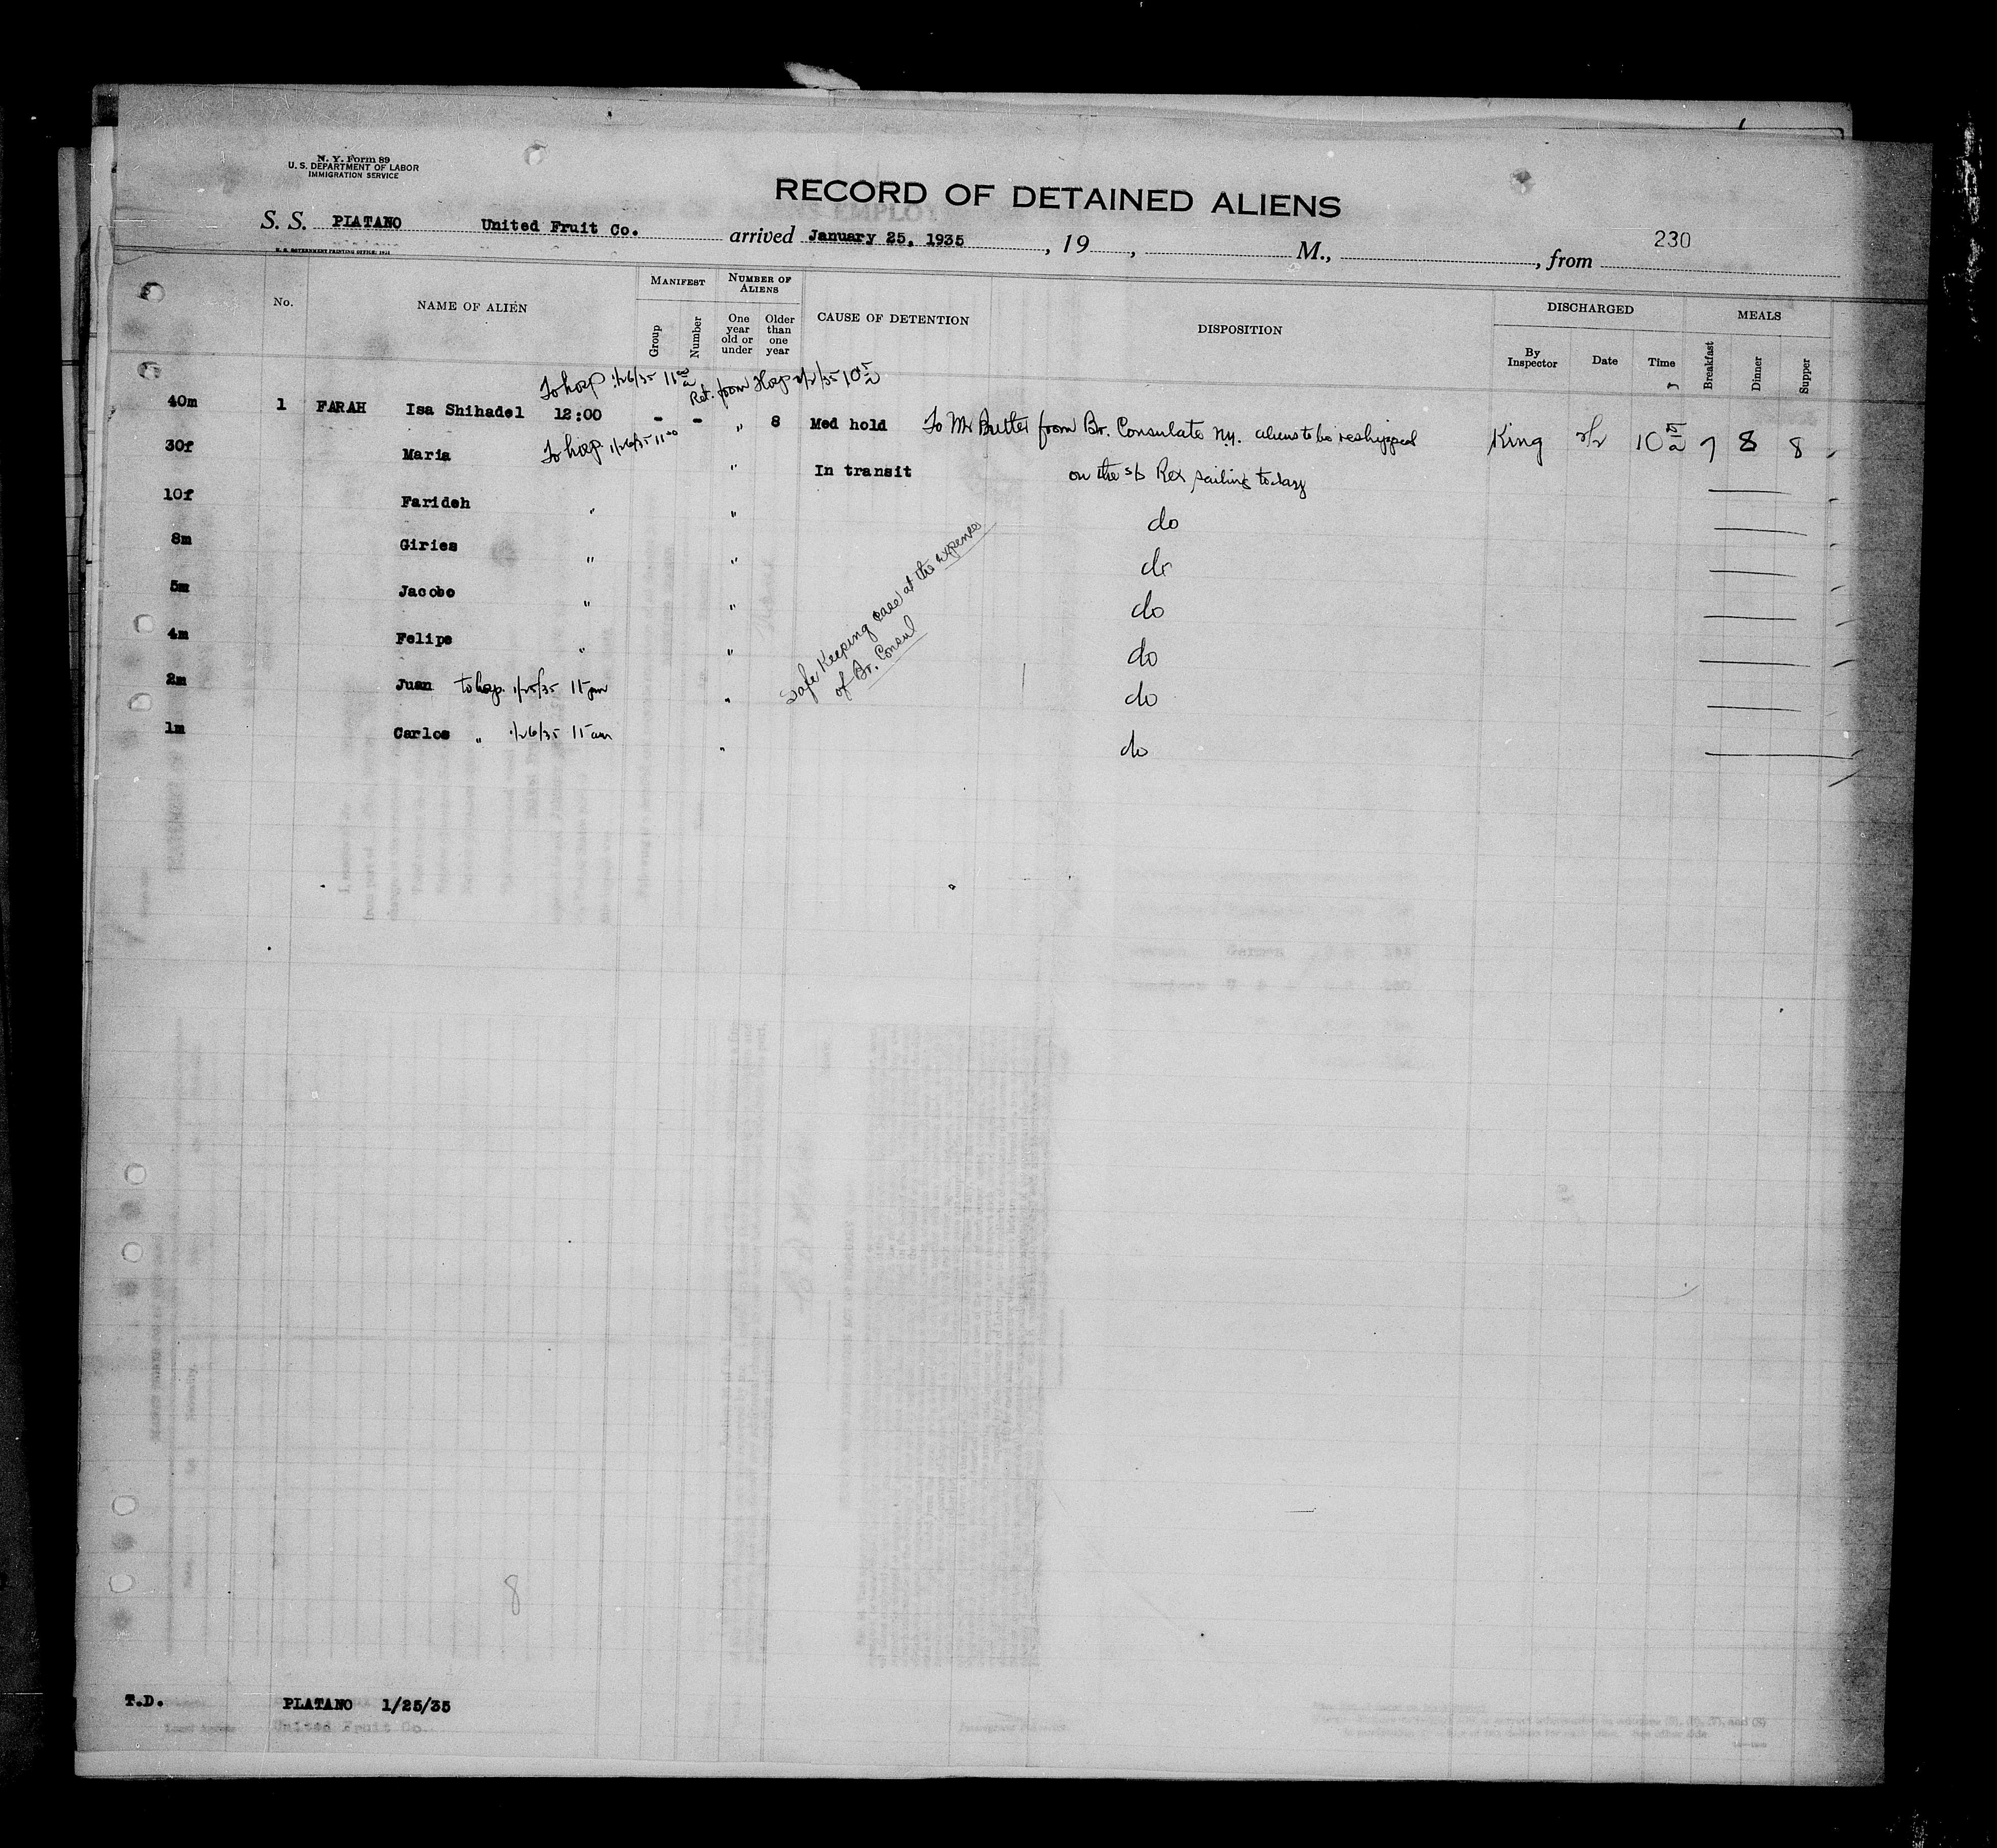 N. Y. Form 89
U. S. DEPARTMENT OF LABOR
IMMIGRATION SERVICE
RECORD OF DETAINED ALIENS
S. S. PLATANO United Fruit Co. arrived January 25, 1935, 19, M., , from 230
U. S. GOVERNMENT PRINTING OFFICE: 1934
No. NAME OF ALIEN MANIFEST NUMBER OF ALIENS CAUSE OF DETENTION DISPOSITION DISCHARGED MEALS
Group Number One year old or under Older than one year By Inspector Date Time Breakfast Dinner Supper
To hosp 1/26/35 11 00 a Ret. from Hosp 2/2/35 10 15 a
40m 1 FARAH Isa Shihadel 12:00 - - " 8 Med hold To Mr from Br. Consulate N.Y. aliens to be reshipped King 2/2 10 15 a 7 8 8
30f Maria To hosp 1/26/35 11 00 " In transit on the s/s Rex sailing today
10f Farideh " " do
8m Giries " " do
5m Jacobo " " do
4m Felipe " " do
2m Juan to hosp. 1/25/35 15 pm " do
1m Carlos " 1/26/35 11 am " do
Safe Keeping case at the expense
of Br. Consul
8
T.D. PLATANO 1/25/35
United Fruit Co.